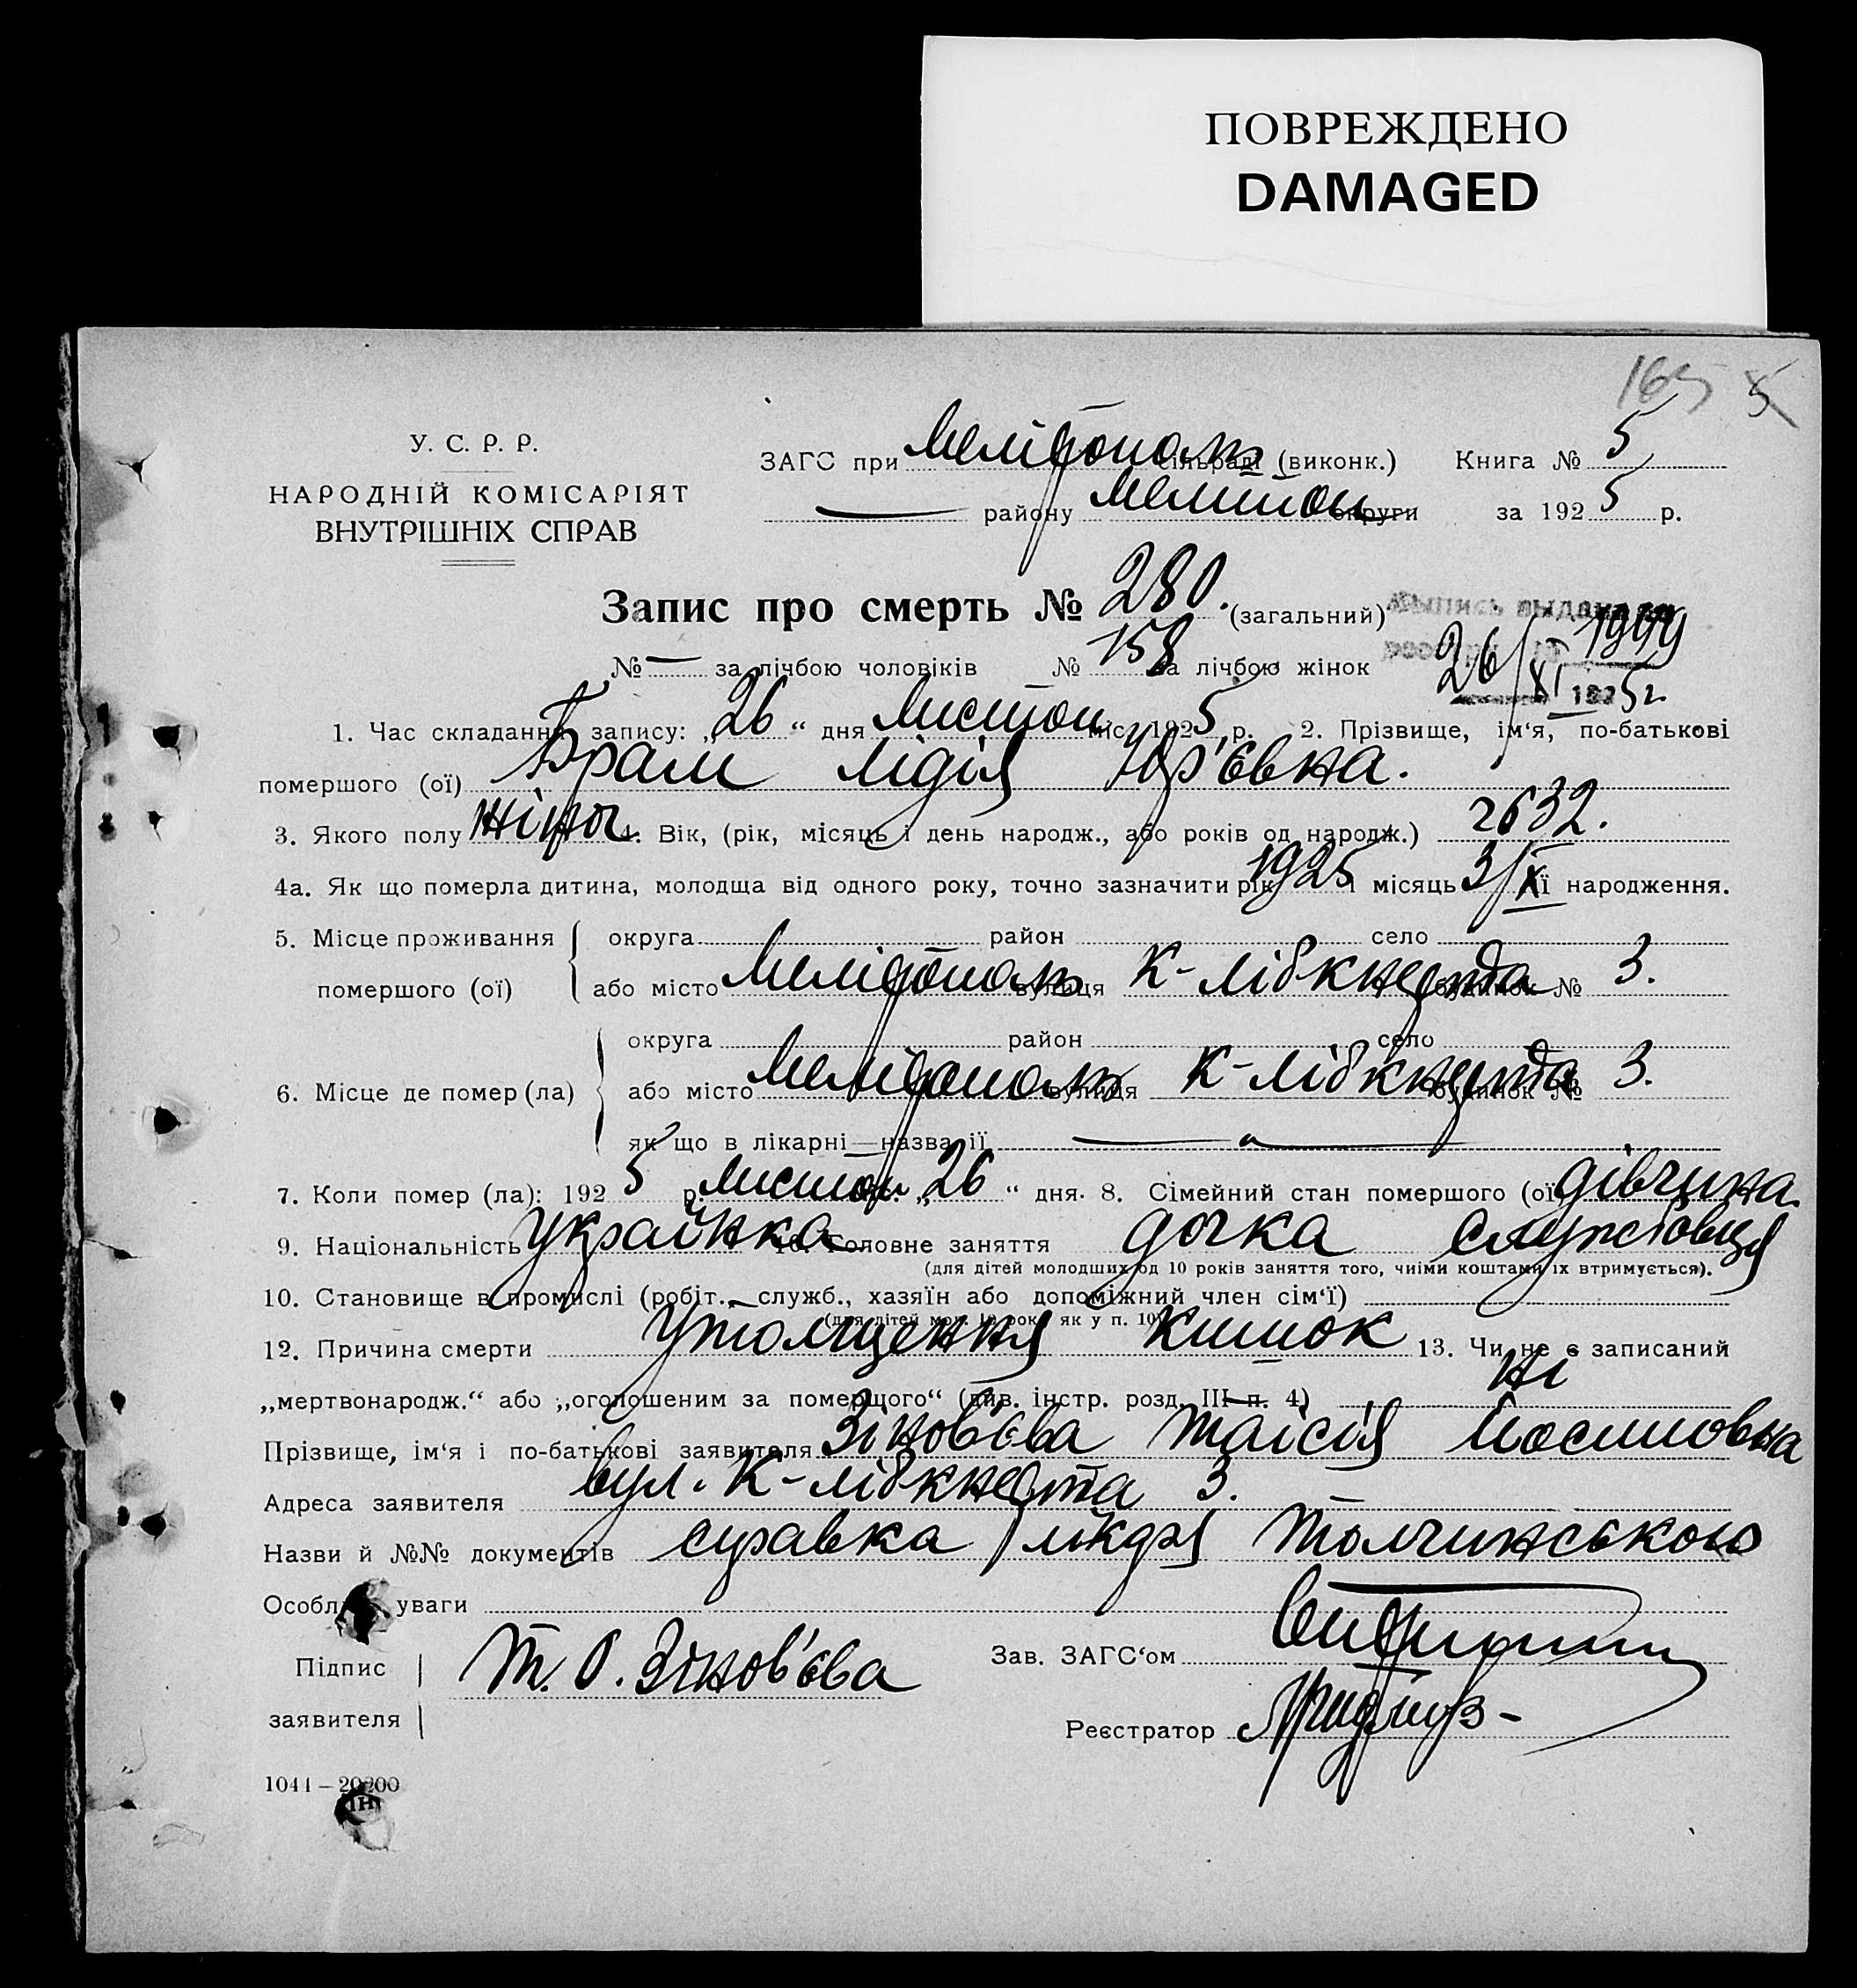 ПОВРЕЖДЕНО
DAMAGED
165 5
У. С. Р. Р.
НАРОДНІЙ КОМІСАРІЯТ
ВНУТРІШНІХ СПРАВ
ЗАГС при Мелітополь сільраді (виконк.) Книга № 5
— району Мелітоп округи за 1925 р.
Запис про смерть № 280. (загальний)
№ — за лічбою чоловіків № 158 за лічбою жінок
1999
26/XI 1925 г.
1. Час складання запису: „26“ дня листоп міс. 1925 р. 2. Прізвище, ім'я, по-батькові
помершого (ої) Брам Лідія Юр'євна.
3. Якого полу жіноч. 4. Вік, (рік, місяць і день народж., або років од народж.)
4а. Як що померла дитина, молодща від одного року, точно зазначити рік 1925 і місяць 3/XI її народження.
5. Місце проживання округа район село
помершого (ої) або місто Мелітополь вулиця К-Лібкнехта будинок № 3.
округа район село
6. Місце де помер (ла) або місто Мелітополь вулиця К-Лібкнехта будинок № 3.
як що в лікарні—назва її —
7. Коли помер (ла): 1925 р. листоп. „26“ дня. 8. Сімейний стан помершого (ої) дівчина.
9. Національність українка 10. Головне заняття дочка службовця
(для дітей молодших од 10 років заняття того, чиїми коштами їх втримується).
10. Становище в промислі (робіт., служб., хазяїн або допоміжний член сім'ї)
(для дітей мол. 10 рок. як у п. 10)
12. Причина смерти кишок 13. Чи не є записаний
„мертвонародж.“ або „оголошеним за помершого“ (див. інстр. розд. III п. 4) ні
Прізвище, ім'я і по-батькові заявителя Зінов'єва Таісія Йосиповна
Адреса заявителя вул. К-Лібкнехта 3.
Назви й №№ документів справка лікаря Толчинського
Особливі уваги
Підпис
заявителя
Т. О. Зінов'єва
Зав. ЗАГС'ом
Реєстратор
1041—20200